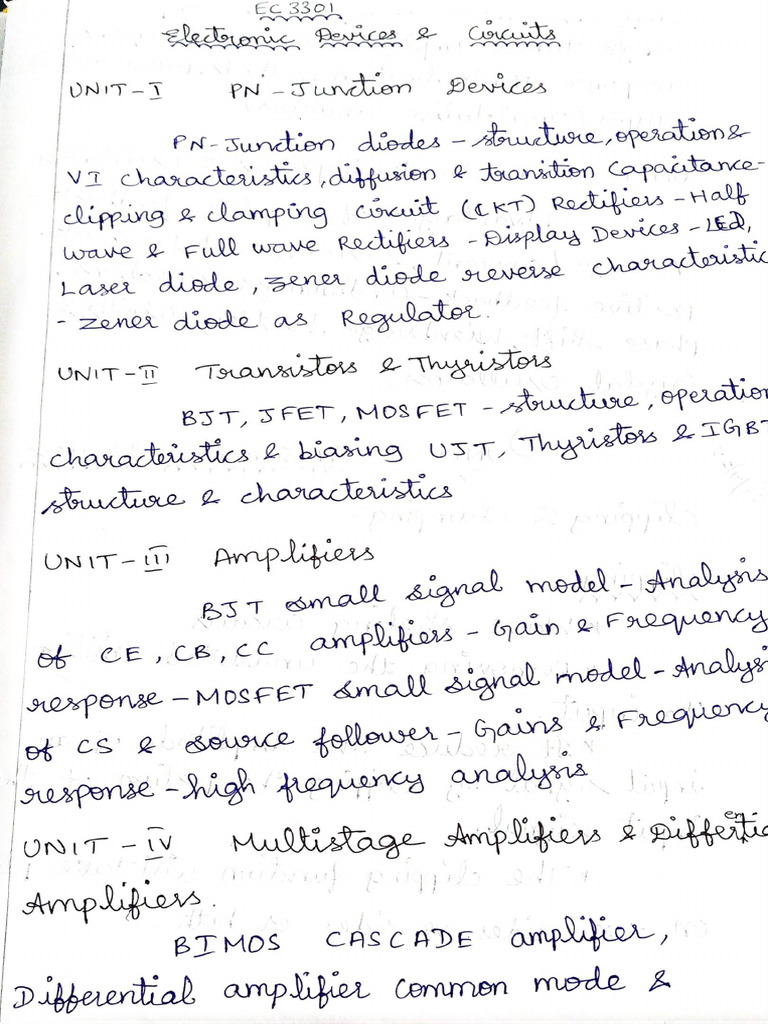 EC 3301
Electronic Devices & Circuits
UNIT-I PN-Junction Devices
PN-Junction diodes - structure, operation &
VI characteristics, diffusion & transition capacitance-
clipping & clamping circuit (CKT) Rectifiers - Half
wave & Full wave Rectifiers - Display Devices - LED,
Laser diode, zener diode reverse characteristic
- zener diode as Regulator.
UNIT-II Transistors & Thyristors
BJT, JFET, MOSFET - structure, operation
characteristics & biasing UJT, Thyristors & IGBT
structure & characteristics
UNIT-III Amplifiers
BJT small signal model - Analysis
of CE, CB, CC amplifiers - Gain & Frequency
response - MOSFET small signal model - Analysi
of CS & source follower - Gains & Frequency
response - high frequency analysis
UNIT-IV Multistage Amplifiers &
Amplifiers.
BIMOS CASCADE amplifier,
Differential amplifier common mode &